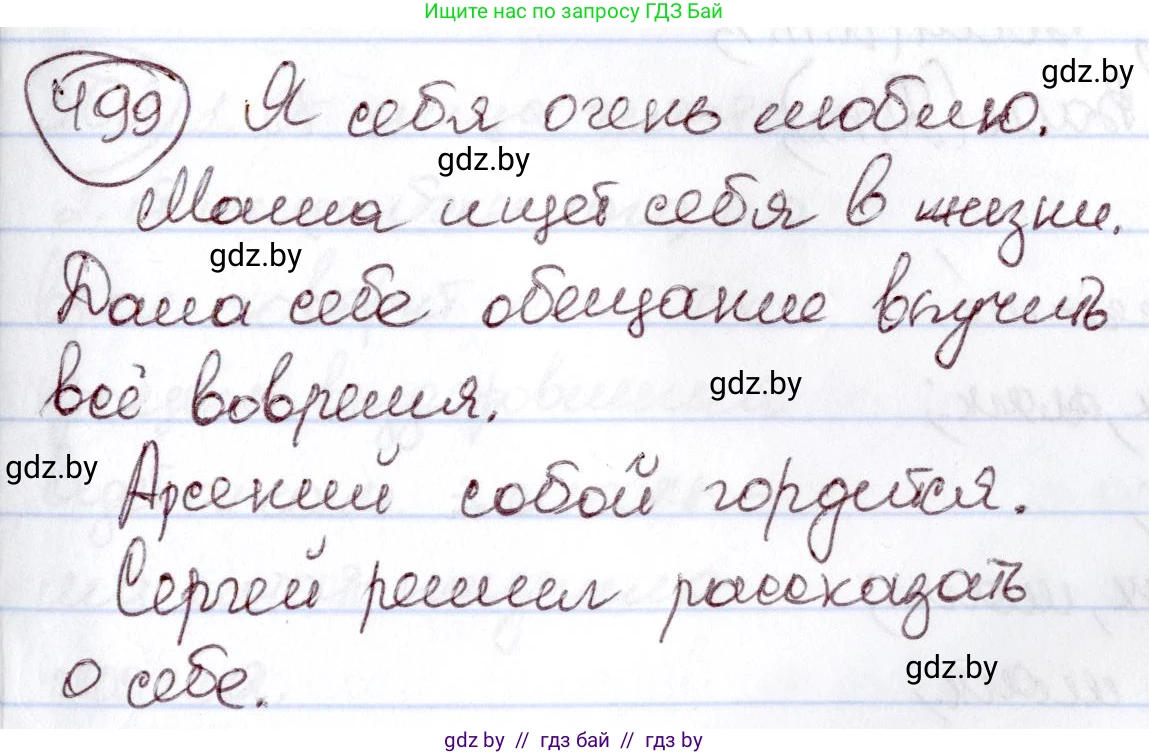 Ищите нас по запросу ГДЗ Бай
499 Я себя очень люблю.
gdz.by
gdz.by
Маша ищет себя в жизни.
gdz.by
Дала себе обещание выучить
всё вовремя.
gdz.by
gdz.by
Арсений собой гордится.
Сергей решил рассказать
о себе.
gdz.by
gdz.by // гдз бай // гдз by